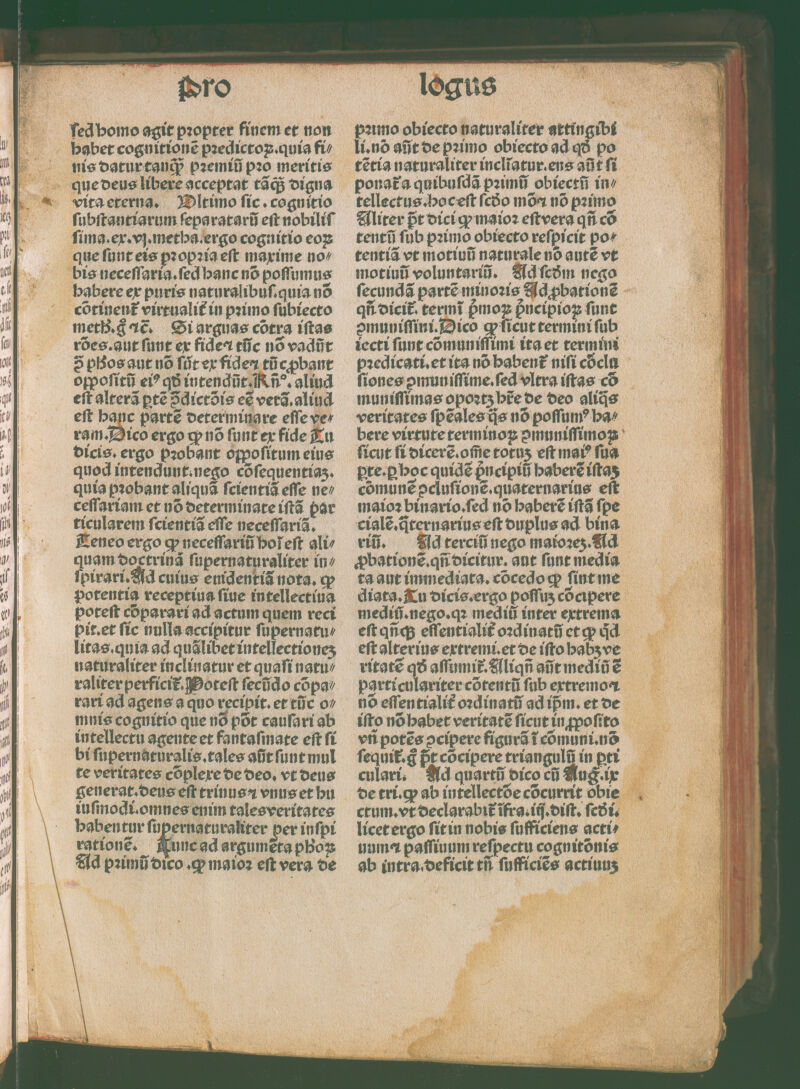 Pro logus
sed homo agit ꝓpter finem et non
habet cognitionē predictoꝝ. quia fi⸗
nis datur tanqȝ premiū pro meritis
que deus libere acceptat tāqȝ digna
vita eterna. Ultimo sic. cognitio
substantiarum separatarū est nobilis
sima. ex. vj. metha. ergo cognitio eoꝝ
que sunt eis propria est maxime no⸗
bis necessaria. sed hanc nō possumus
habere ex puris naturalibus. quia nō
cōtinent᷑ virtualit᷑ in primo subiecto
meth. g̊ ⁊c̄. Si arguas cōtra istas
rōes. aut sunt ex fide⁊ tūc nō vadūt
ↄ̄ phos aut nō sūt ex fide⁊ tūc ꝓbant
oppositū eiꝰ qđ intendūt. Rn̄º. aliud
est alterā ꝑtē ↄ̄dictōis eē verā. aliud
est hanc partē determinare esse ve⸗
ram. Dico ergo ꝙ nō sunt ex fide Tu
dicis. ergo probant oppositum eius
quod intendunt. nego cōsequentiaȝ.
quia probant aliquā scientiā esse ne⸗
cessariam et nō determinate istā par
ticularem scientiā esse necessariā.
Teneo ergo ꝙ necessariū hoī est ali⸗
quam doctrinā supernaturaliter in⸗
spirari. Ad cuius euidentiā nota. ꝙ
potentia receptiua siue intellectiua
potest cōparari ad actum quem reci
pit. et sic nulla accipitur supernatu⸗
litas. quia ad quālibet intellectioneȝ
naturaliter inclinatur et quasi natu⸗
raliter perficit᷑. Potest secūdo cōpa⸗
rari ad agens a quo recipit. et tūc o⸗
mnis cognitio que nō pōt causari ab
intellectu agente et fantasmate est si
bi supernaturalis. tales aūt sunt mul
te veritates cōplexe de deo. vt deus
generat. deus est trinus⁊ vnus et hu
iusmodi. omnes enim tales veritates
habentur supernaturaliter per inspi
rationē. Nunc ad argumēta phoꝝ
Ad primū dico. ꝙ maior est vera de
primo obiecto naturaliter attingibi
li. nō aūt de primo obiecto ad qđ po
tētia naturaliter inclīatur. ens aūt si
ponat᷑ a quibusdā primū obiectū in⸗
tellectus. hoc est scđo mō⁊ nō primo
Aliter p̄t dici ꝙ maior est vera qn̄ cō
tentū sub primo obiecto respicit po⸗
tentiā vt motiuū naturale nō autē vt
motiuū voluntariū. Ad scđm nego
secundā partē minoris Ad ꝓbationē
qn̄ dicit᷑. termī p̄moꝝ p̄ncipioꝝ sunt
ↄmunissini. Dico ꝙ sicut termini sub
iecti sunt cōmunissimi ita et termini
predicati. et ita nō habent᷑ nisi cōclu
siones ↄmunissime. sed vltra istas cō
munissimas oportȝ hr̄e de deo aliq̄s
veritates spēales q̄s nō possumꝰ ha⸗
bere virtute terminoꝝ ↄmunissimoꝝ
sicut si dicerē. om̄e totuȝ est maiꝰ sua
ꝑte. ꝑ hoc quidē p̄ncipiū haberē istaȝ
cōmunē ↄclusionē. quaternarius est
maior binario. sed nō haberē istā spe
cialē. q̄ternarius est duplus ad bina
riū. Ad terciū nego maioreȝ. Ad
ꝓbationē. qn̄ dicitur. aut sunt media
ta aut immediata. cōcedo ꝙ sint me
diata. Tu dicis. ergo possuȝ cōcipere
mediū. nego. qꝛ mediū inter extrema
est qn̄qȝ essentialit᷑ ordinatū et ꝙ q̄d
est alterius extremi. et de isto habȝ ve
ritatē qđ assumit᷑. Aliqn̄ aūt mediū ē
particulariter cōtentū sub extremo⁊
nō essentialit᷑ ordinatū ad ip̄m. et de
isto nō habet veritatē sicut in ꝓposito
vn̄ potēs ↄcipere figurā ī cōmuni. nō
sequit᷑. g̊ p̄t cōcipere triangulū in ꝑti
culari. Ad quartū dico cū Aug̊. ix
de tri. ꝙ ab intellectōe cōcurrit obie
ctum. vt declarabit᷑ īfra. iij. dist. scđi.
licet ergo sit in nobis sufficiens acti⸗
uum⁊ passiuum respectu cognitōnis
ab intra. deficit tn̄ sufficiēs actiuuȝ